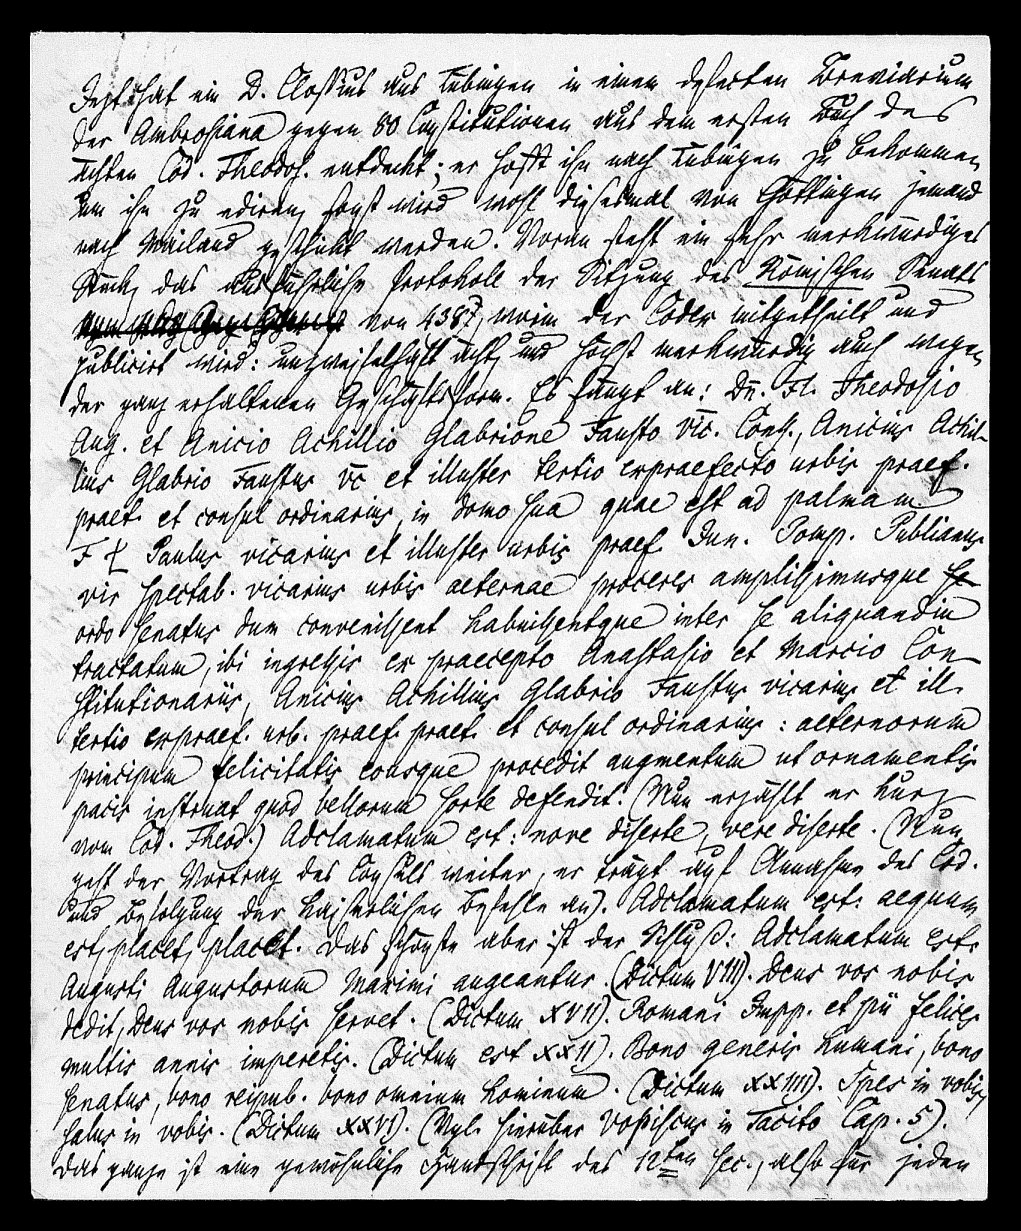 Jetzt hat ein D. Clossius aus Tübingen in einem defecten Breviarium
der Ambrosiana gegen 80 Constitutionen aus dem ersten Buch des
ächten Cod. Theodos. entdeckt; er hofft ihn nach Tübingen zu bekommen
um ihn zu ediren, sonst wird wohl diesesmal von Göttingen jemand
nach Mailand geschickt werden. Voran steht ein sehr merkwürdiges
Stück, das ausführliche Protokoll der Sitzung des Römischen Senats
von 438?, worin der Codex mitgetheilt und
publicirt wird: unzweifelhaft ächt, und höchst merkwürdig auch wegen
der ganz erhaltenen Geschäftsform. Es fängt an: Dn. Fl. Theodosio
Aug. et Anicio Achillio Glabrione Fausto Vc. Cons., Anicius Achil-
lius Glabrio Faustus vc et illuster tertio expraefecto urbis praef.
praet. et consul ordinarius, in domo sua quae est ad palmam
F Paulus vicarius et illuster urbis praef Jun. Pomp. Publianus
vir spectab. vicarius urbis aeternae proceres amplissimusque
ordo senatus dum convenissent habuissentque inter se aliquandiu
tractatum, ibi ingressis ex praecepto Anastasio et Marcio Con-
stitutionariis, Anicius Achillius Glabrio Faustus vicarius et ill.
tertio expraef. urb. praef. praet. et consul ordinarius: aeternorum
principum felicitatis eousque procedit augmentum ut ornamentis
pacis instruat quod bellorum sorte defendit. (Nun erzählt er kurz
vom Cod. Theod.) Adclamatum est: nove diserte, vere diserte. (Nun
geht der Vortrag des Consuls weiter, er trägt auf Annahme des Cod.
und Befolgung der kaiserlichen Befehle an). Adclamatum est: aequum
est, placet, placet. Das schönste aber ist der Schluß: Adclamatum est:
Augusti Augustorum Maximi augeantur. (Dictum VIII). Deus vos nobis
dedit, Deus vos nobis servet. (Dictum XVII). Romani Impp. et pii felices
multis annis imperetis. (Dictum est XXII). Bono generis humani, bono
senatus, bono reipub. bono omnium hominum. (Dictum XXIIII). Spes in vobis,
salus in vobis. (Dictum XXVI). (Vgl. hierüber Vopiscus in Tacito Cap. 5).
Das ganze ist eine gewöhnliche Handschrift des 12ten sec., also für jeden